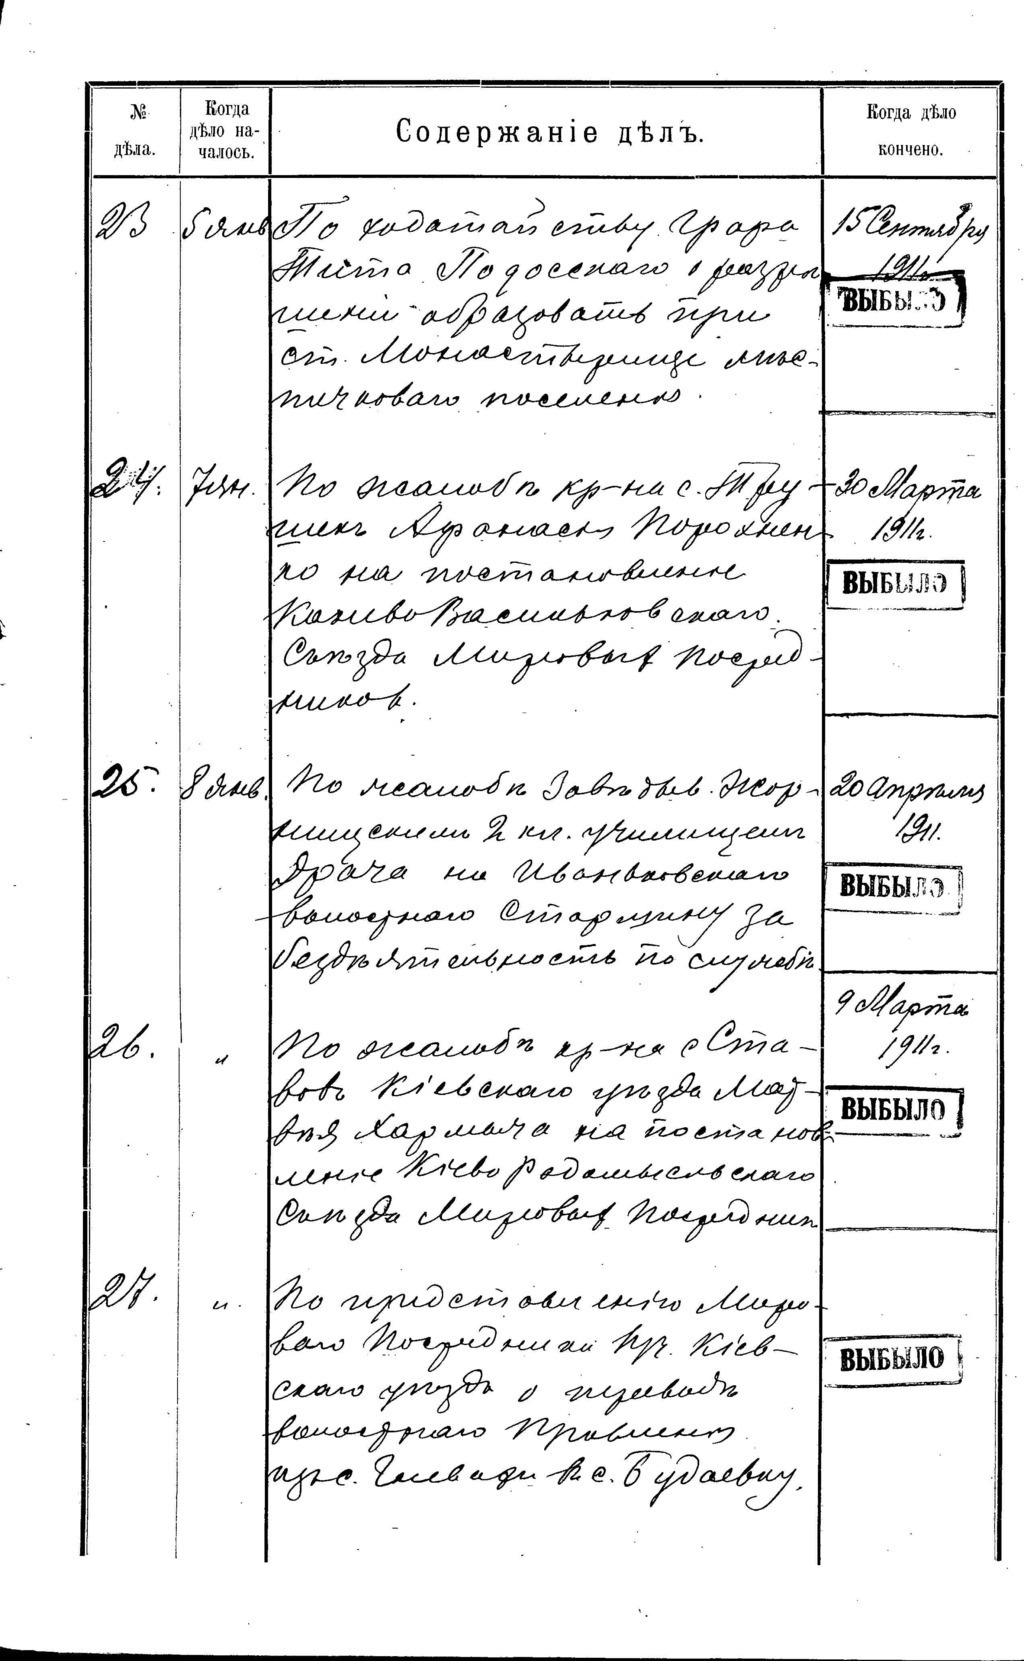 № дѣла.
Когда дѣло на-
чалось.
Содержаніе дѣлъ.
Когда дѣло кончено.
23 5 янв По ходатайству Графа
Тита Подосскаго о разрѣ
шеніи образовать при
ст. Монастырище мѣс-
течковаго поселенія.
15 Сентября
1911г.
ВЫБЫЛО
24. 7 ян. По жалобѣ кр-на с. Тру-
шекъ Афанасія Порохнен
ко на постановленіе
КаневоВасильковскаго
Съѣзда Мировыхъ Посред-
никовъ.
30 Марта
1911г.
ВЫБЫЛО
25. 8 янв. По жалобѣ Завѣдыв. Жор-
нищскимъ 2 кл. училищемъ
Драча на Иваньковскаго
волостнаго Старшину за
бездѣятельность по службѣ
20 Апрѣля
1911.
ВЫБЫЛО
26. " По жалобѣ кр-на с Ста-
вовъ Кіевскаго уѣзда Мат-
вѣя Хармача на постанов-
леніе КіевоРадомысльскаго
Съѣзда Мировыхъ Посредник
9 Марта
1911г.
ВЫБЫЛО
27. ". По представленію Миро-
ваго Посредника Кіев-
скаго уѣзда о переводѣ
волостнаго Правленія
изъ с. въ с. Будаевку.
ВЫБЫЛО